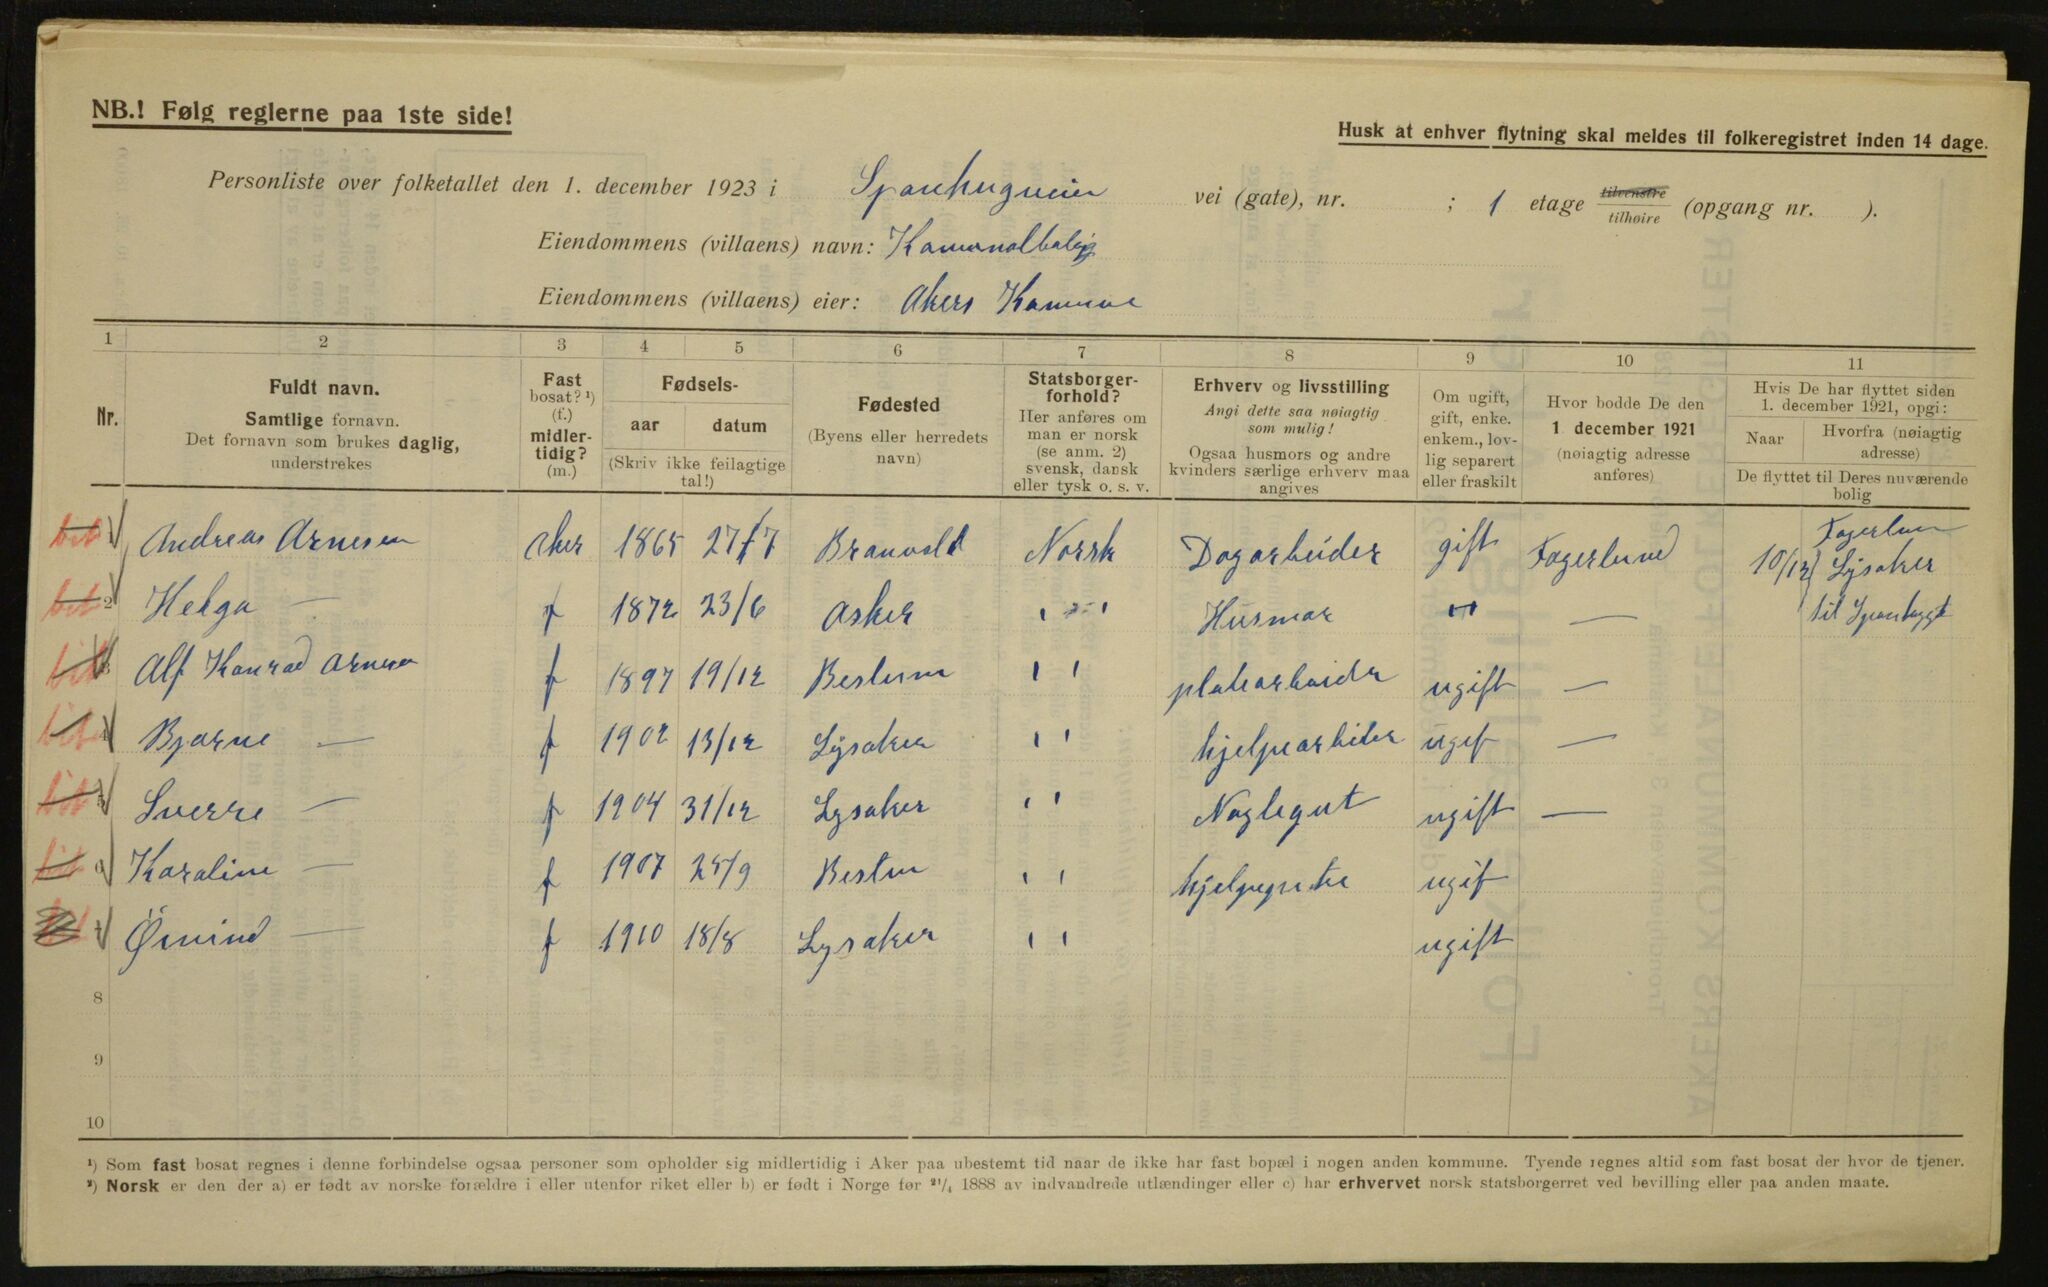 NB.! Følg reglerne paa 1ste side!
Husk at enhver flytning skal meldes til folkeregistret inden 14 dage.
Personliste over folketallet den 1. december 1923 i vei (gate), nr. ; 1 etage tilvenstre tilhøire (opgang nr. ).
Eiendommens (villaens) navn:
Eiendommens (villaens) eier: Akers Komune
1 2 3 4 5 6 7 8 9 10 11
Nr.
Fuldt navn.
Samtlige fornavn.
Det fornavn som brukes daglig,
understrekes
Fast
bosat? ¹)
(f.)
midler-
tidig?
(m.)
Fødsels-
aar datum
(Skriv ikke feilagtige
tal!)
Fødested
(Byens eller herredets
navn)
Statsborger-
forhold?
Her anføres om
man er norsk
(se anm. 2)
svensk, dansk
eller tysk o. s. v.
Erhverv og livsstilling
Angi dette saa nøiagtig
som mulig!
Ogsaa husmors og andre
kvinders særlige erhverv maa
angives
Om ugift,
gift, enke.
enkem., lov-
lig separert
eller fraskilt
Hvor bodde De den
1. december 1921
(nøiagtig adresse
anføres)
Hvis De har flyttet siden
1. december 1921, opgi:
Naar
Hvorfra (nøiagtig
adresse)
De flyttet til Deres nuværende
bolig
1 Andreas Arnesen Aker 1865 27/7 Branvold Norsk Dagarbeider gift Fagerlund 10/12 Lysaker
2 Helga — f 1872 23/6 Asker " " Husmor " — til
3 Alf Konrad Arnesen f 1897 19/12 Bestum " " platearbeider ugift —
4 Bjarne — f 1902 13/12 Lysaker " " hjelpearbeider ugif —
5 Sverre — f 1904 31/12 Lysaker " " Naglegut ugift —
6 Karoline — f 1907 25/9 Bestum " " ugif
7 Öivind — f 1910 18/8 Lysaker " " ugift
8
9
10
¹) Som fast bosat regnes i denne forbindelse ogsaa personer som opholder sig midlertidig i Aker paa ubestemt tid naar de ikke har fast bopæl i nogen anden kommune. Tyende regnes altid som fast bosat der hvor de tjener.
²) Norsk er den der a) er født av norske forældre i eller utenfor riket eller b) er født i Norge før ²¹/₄ 1888 av indvandrede utlændinger eller c) har erhvervet norsk statsborgerret ved bevilling eller paa anden maate.